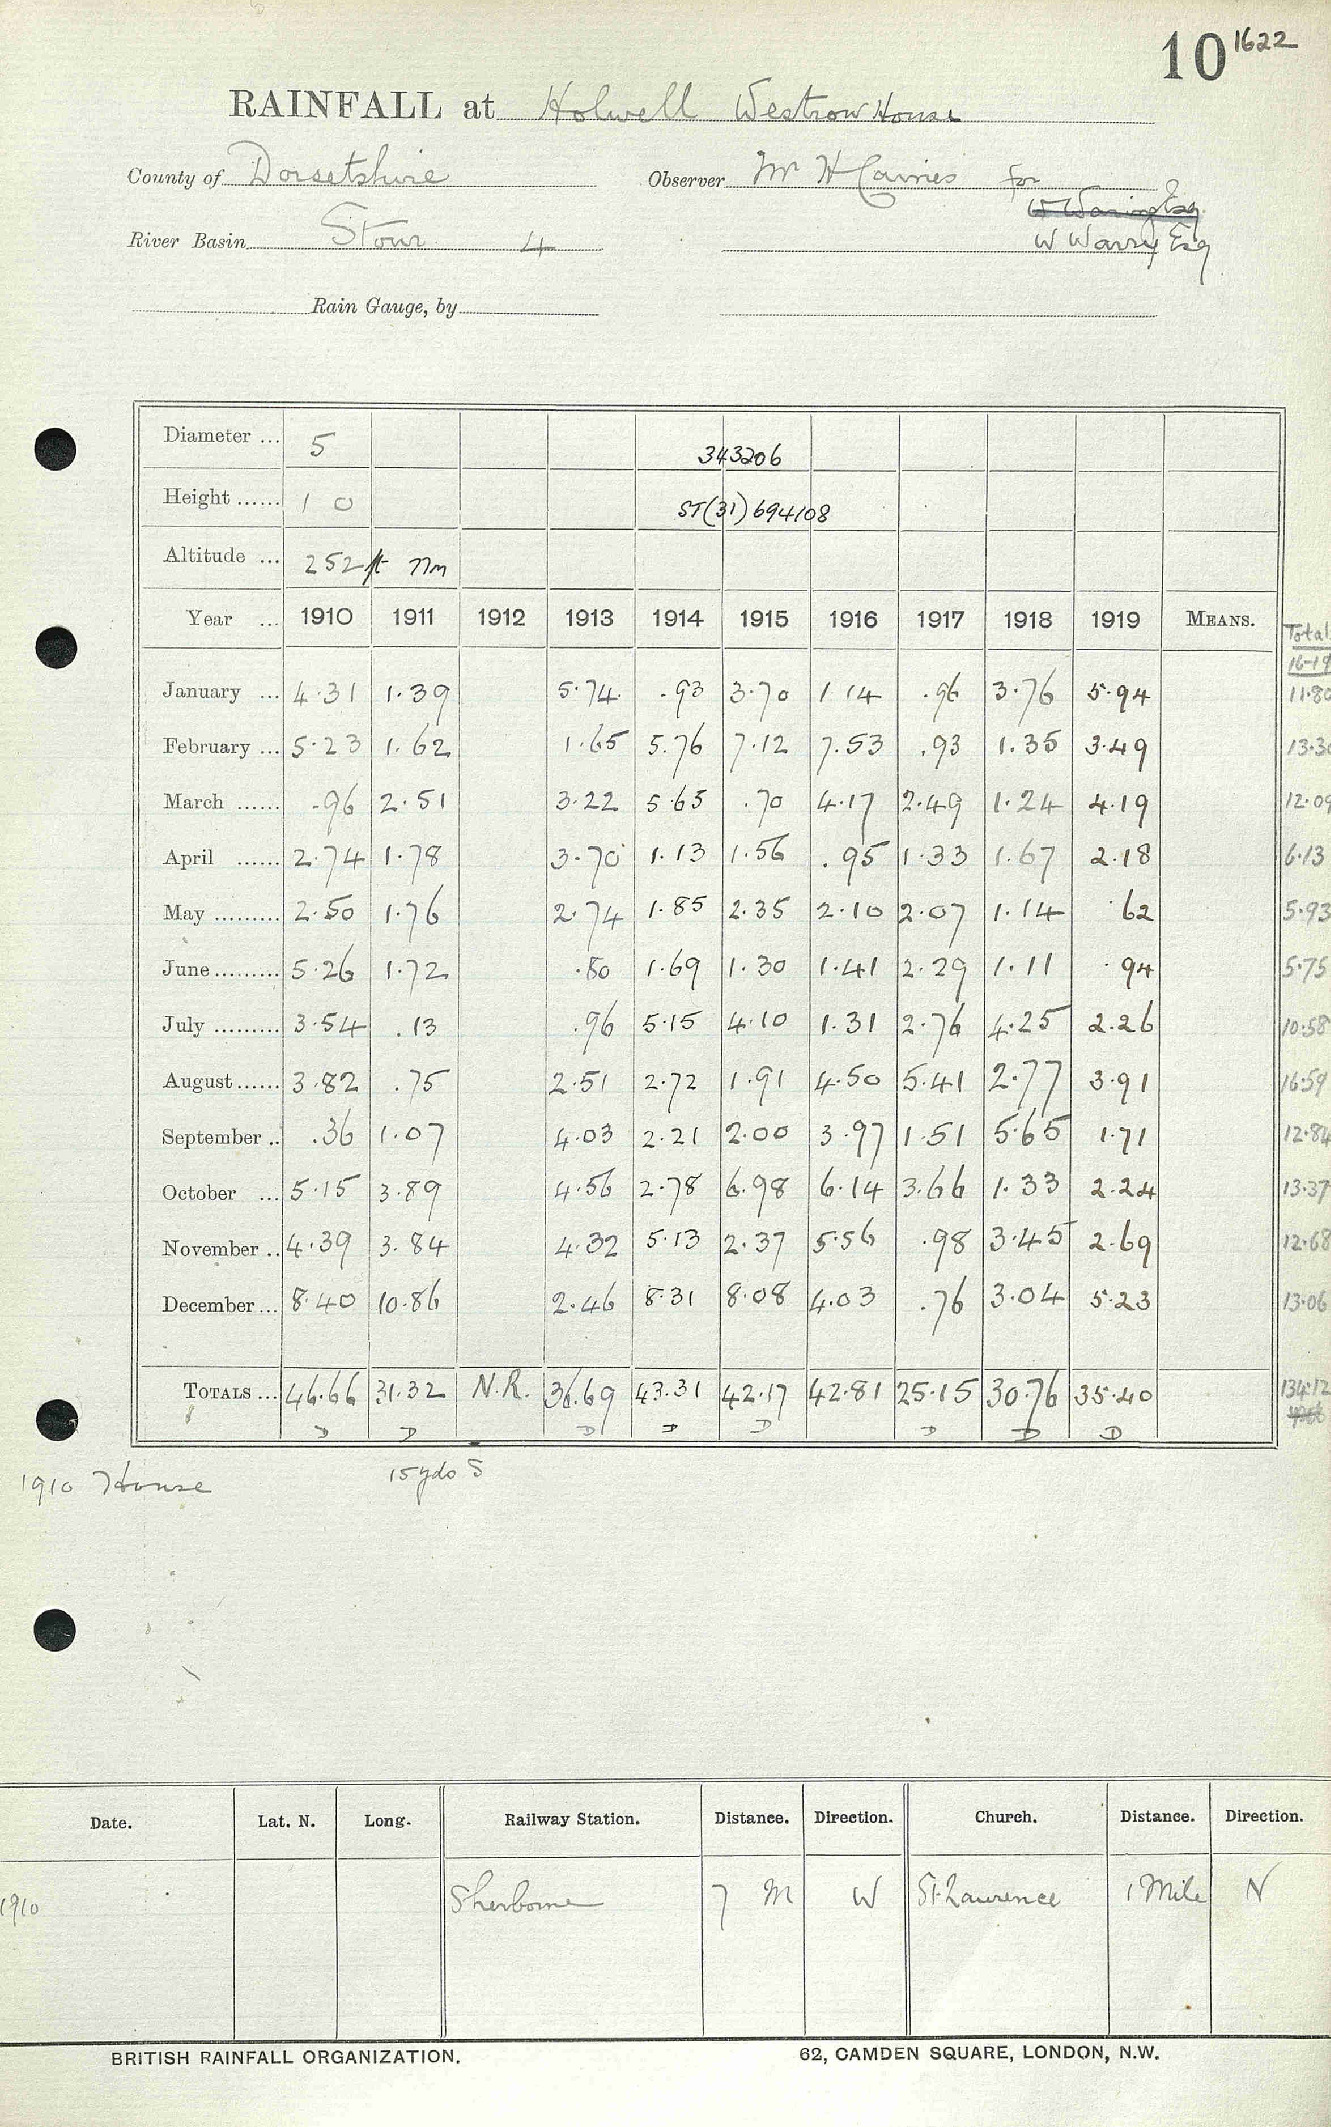 10 1622
RAINFALL at Holwell Westrow House
County of Dorsetshire Observer Mr H Cairnes for
River Basin Stour 4 W Warry Esq
Rain Gauge, by
Diameter ... 5 343206
Height ...... 1 0 ST(31)694108
Altitude ... 252 ft
Year ... 1910 1911 1912 1913 1914 1915 1916 1917 1918 1919 MEANS. Total 16-19
January ... 4.31 1.39 5.74 .93 3.70 1.14 .96 3.76 5.94 11.80
February ... 5.23 1.62 1.65 5.76 7.12 7.53 .93 1.35 3.49 13.30
March ...... .96 2.51 3.22 5.65 .70 4.17 2.49 1.24 4.19 12.09
April ...... 2.74 1.78 3.70 1.13 1.56 .95 1.33 1.67 2.18 6.13
May ......... 2.50 1.76 2.74 1.85 2.35 2.10 2.07 1.14 .62 5.93
June ......... 5.26 1.72 .80 1.69 1.30 1.41 2.29 1.11 .94 5.75
July ......... 3.54 .13 .96 5.15 4.10 1.31 2.76 4.25 2.26 10.58
August ...... 3.82 .75 2.51 2.72 1.91 4.50 5.41 2.77 3.91 16.59
September .. .36 1.07 4.03 2.21 2.00 3.97 1.51 5.65 1.71 12.84
October ... 5.15 3.89 4.56 2.78 6.98 6.14 3.66 1.33 2.24 13.37
November .. 4.39 3.84 4.32 5.13 2.37 5.56 .98 3.45 2.69 12.68
December ... 8.40 10.86 2.46 8.31 8.08 4.03 .76 3.04 5.23 13.06
TOTALS ... 46.66 31.32 N.R. 36.69 43.31 42.17 42.81 25.15 30.76 35.40 134.12
D D D D D D D D
1910 House 15 yds S
Date. Lat. N. Long. Railway Station. Distance. Direction. Church. Distance. Direction.
1910 Sherborne 7 M W St. Laurence 1 Mile N
BRITISH RAINFALL ORGANIZATION. 62, CAMDEN SQUARE, LONDON, N.W.